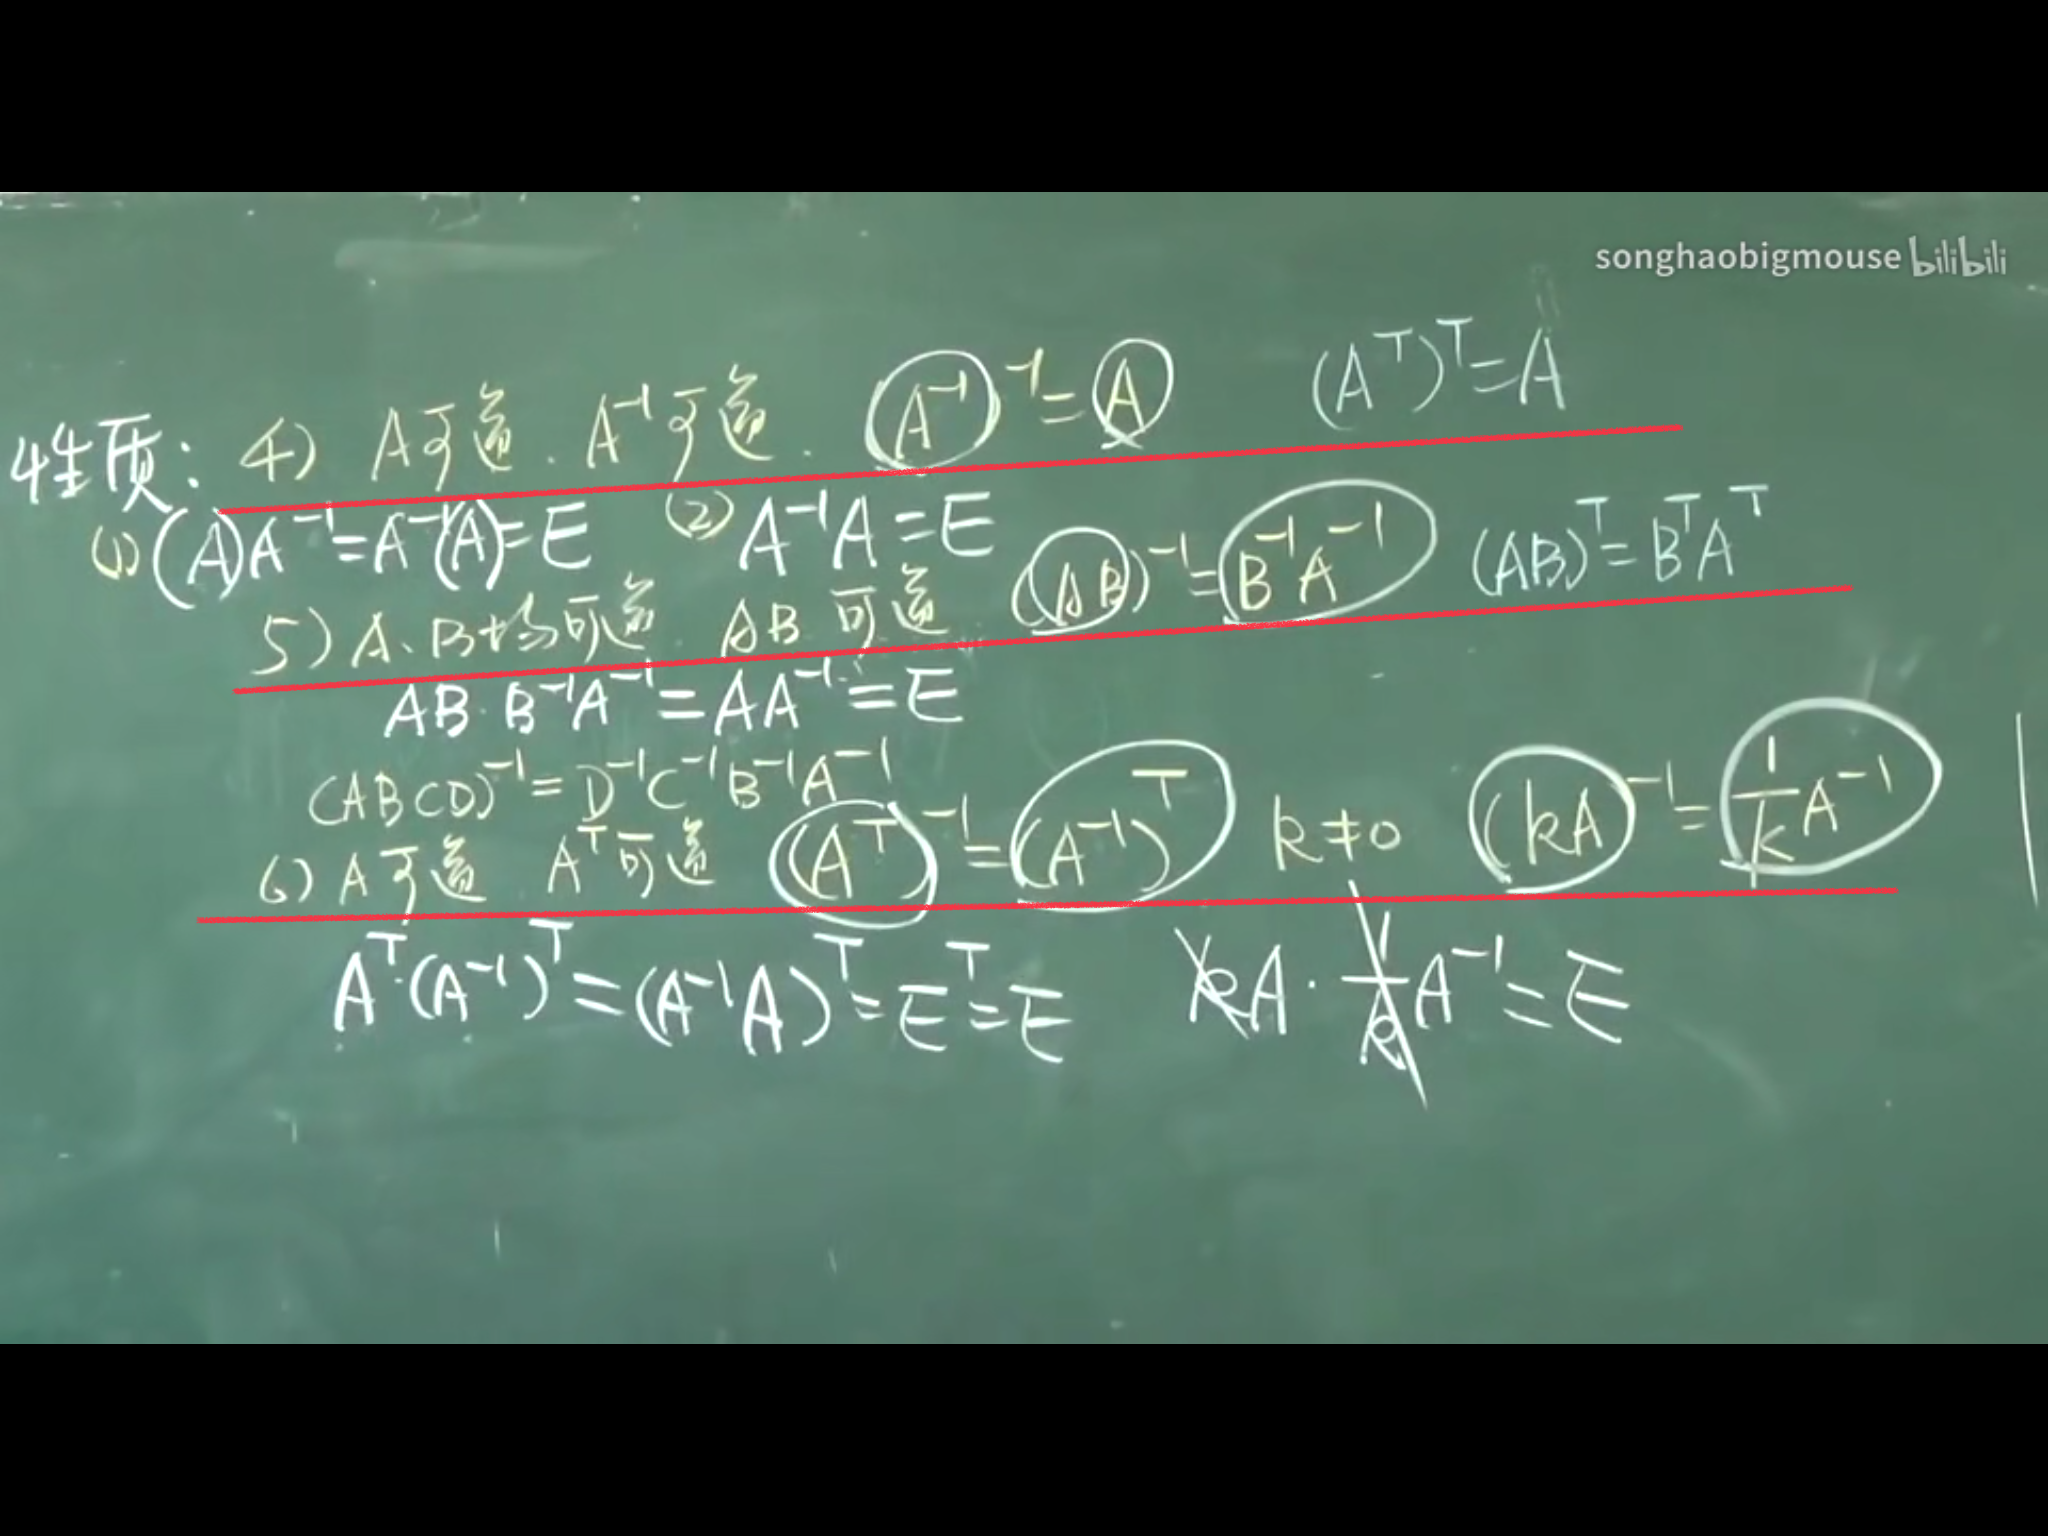 songhaobigmouse bilibili
性质: 4) A可逆. A⁻¹可逆. (A⁻¹)⁻¹=A (Aᵀ)ᵀ=A
(1) (A)A⁻¹=A⁻¹(A)=E (2) A⁻¹A=E
5) A、B均可逆. AB 可逆 (AB)⁻¹=B⁻¹A⁻¹ (AB)ᵀ=BᵀAᵀ
AB·B⁻¹A⁻¹=AA⁻¹=E
(ABCD)⁻¹=D⁻¹C⁻¹B⁻¹A⁻¹
6) A可逆 Aᵀ可逆 (Aᵀ)⁻¹=(A⁻¹)ᵀ k≠0 (kA)⁻¹=1/k A⁻¹
Aᵀ·(A⁻¹)ᵀ=(A⁻¹A)ᵀ=Eᵀ=E kA·1/k A⁻¹=E